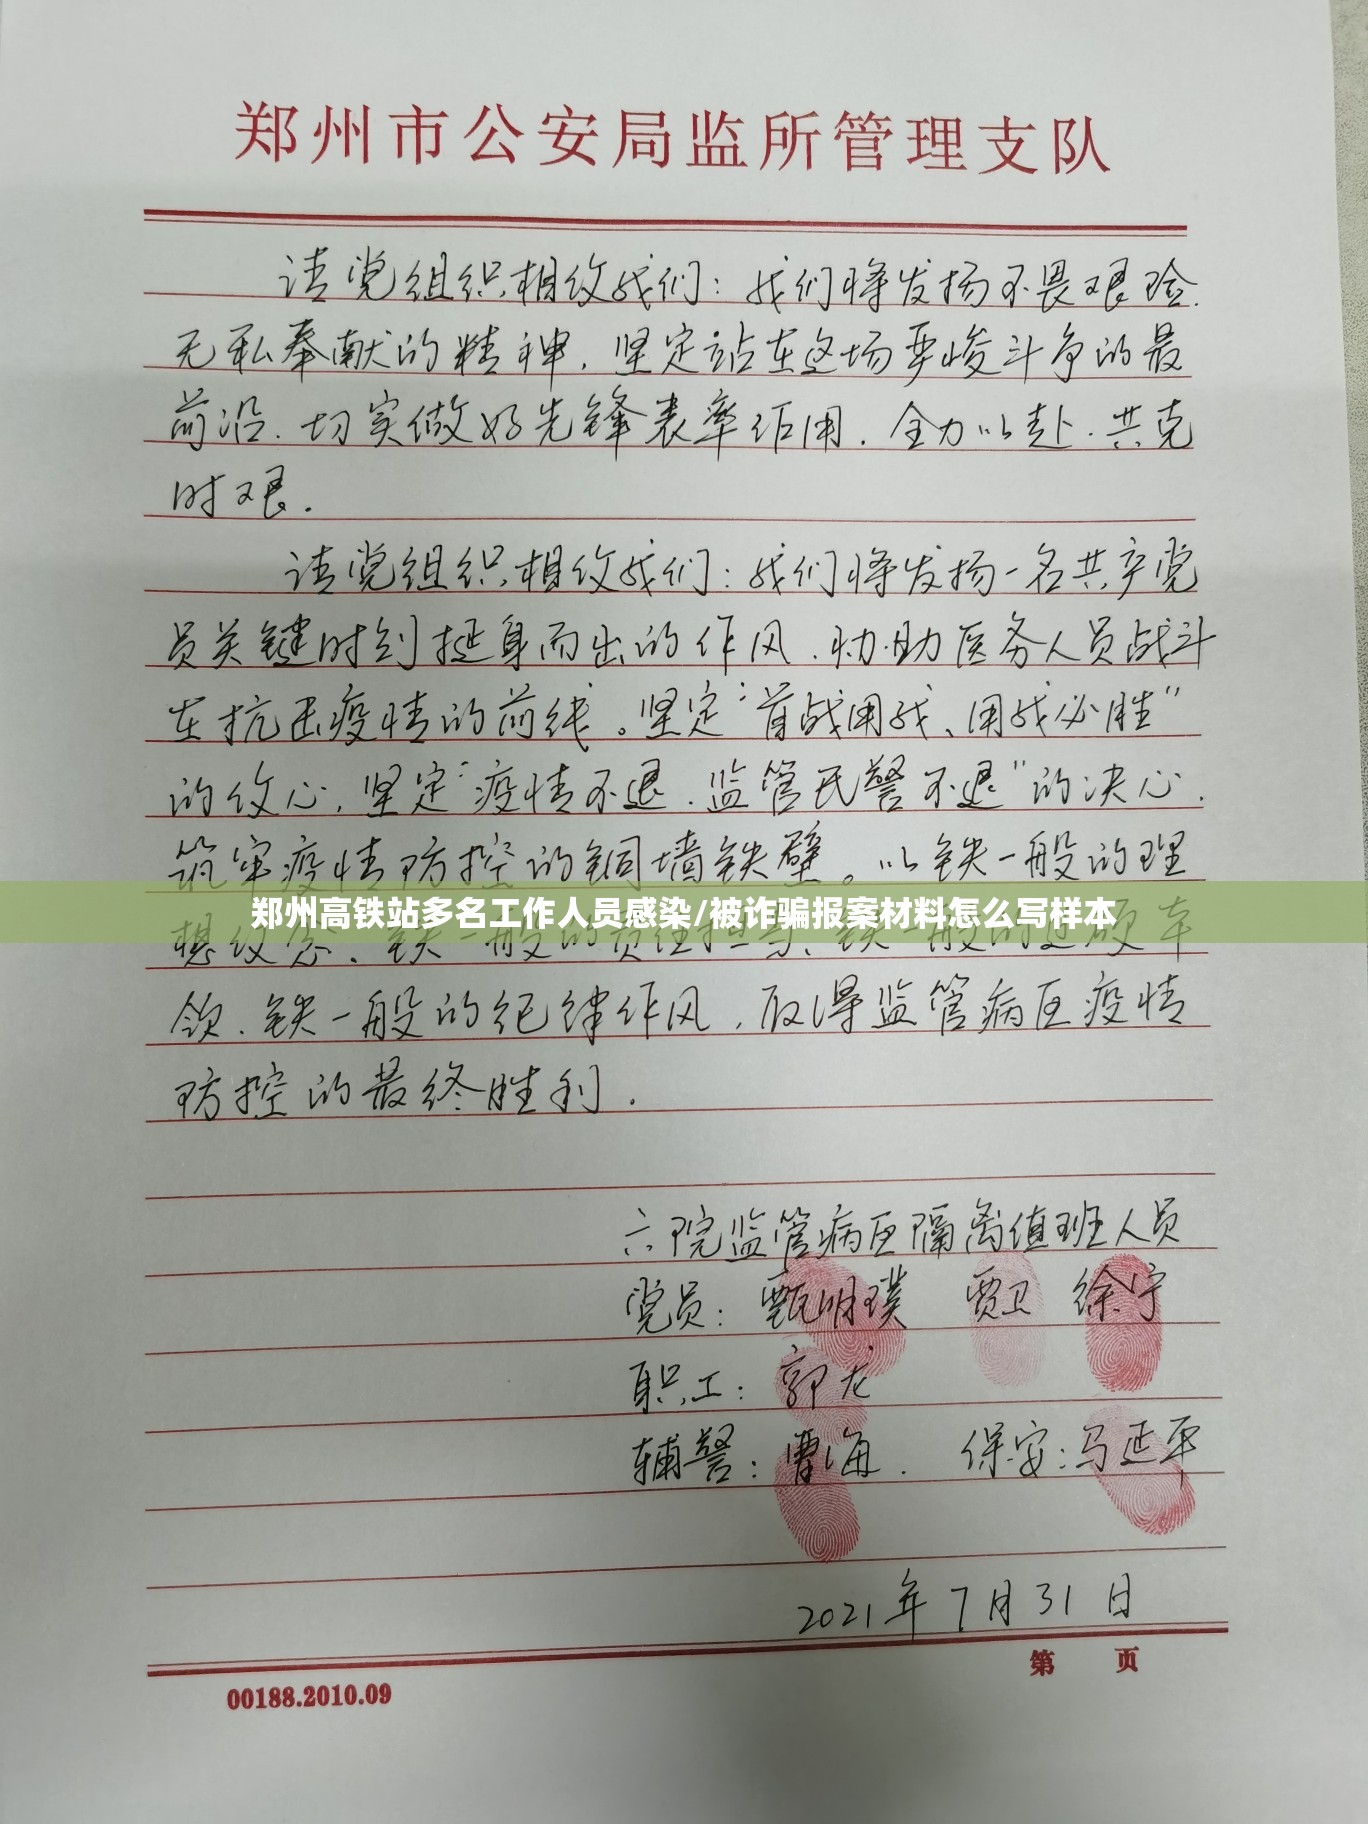 郑州市公安局监所管理支队
请党组织相信我们：我们将发扬不畏艰险、
无私奉献的精神，坚定站在这场严峻斗争的最
前沿，切实做好先锋表率作用，全力以赴、共克
时艰。
请党组织相信我们：我们将发扬一名共产党
员关键时刻挺身而出的作风，协助医务人员战斗
在抗击疫情的前线。坚定“首战用我、用我必胜”
的信心，坚定“疫情不退，监管民警不退”的决心，
筑牢疫情防控的铜墙铁壁。以铁一般的理
郑州高铁站多名工作人员感染/被诈骗报案材料怎么写样本
想信念、铁一般的责任担当、铁一般的过硬本
领、铁一般的纪律作风，取得监管病区疫情
防控的最终胜利.
六院监管病区隔离值班人员
党员：甄明璞 贾卫 徐宁
职工：郭龙
辅警：曹海. 保安：马延平
2021年7月31日
第 页
00188.2010.09